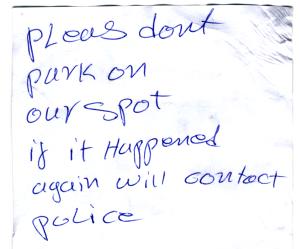 pleas dont
park on
our spot
if it Happened
again will contact
police